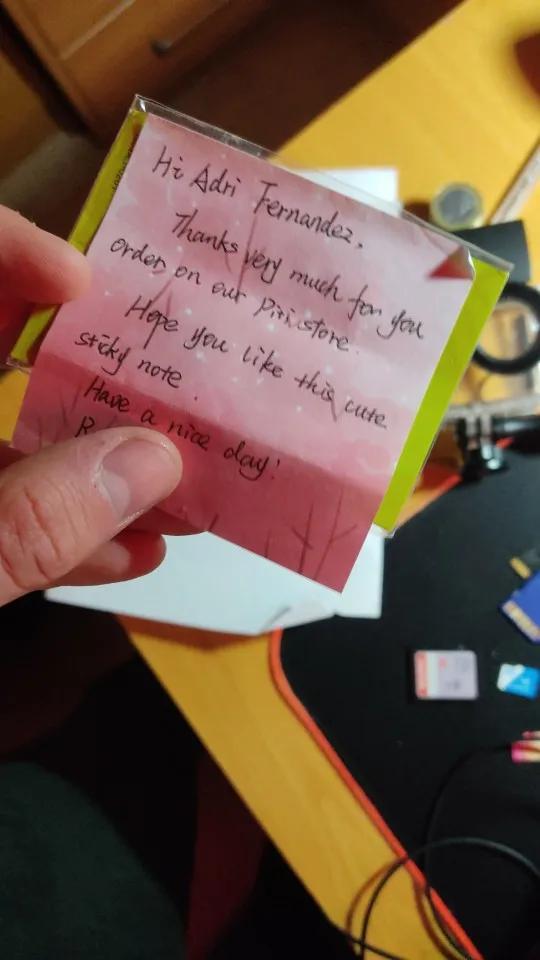 Hi Adri Fernandez,
Thanks very much for you
order on our Piri store.
Hope you like this cute
sticky note.
Have a nice day!